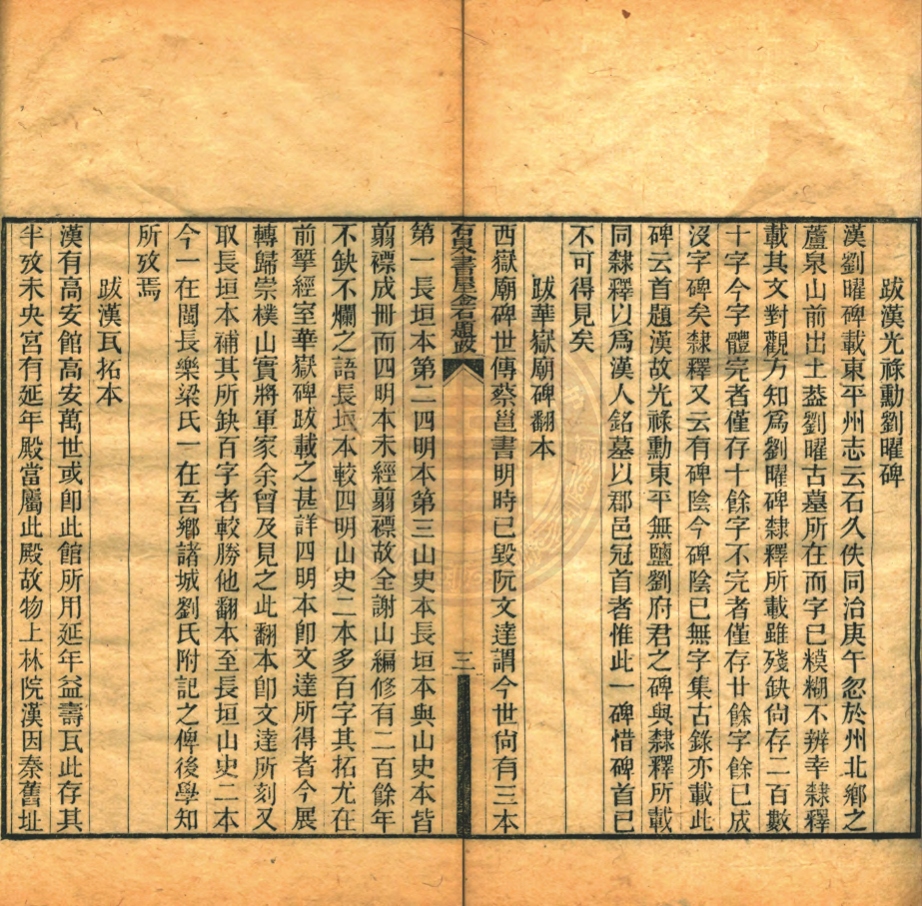 跋漢光祿勳劉曜碑
漢劉曜碑載東平州志云石久佚同治庚午忽於州北鄉之
蘆泉山前出土葢劉曜古墓所在而字已糢糊不辨幸隸釋
載其文對觀方知爲劉曜碑隸釋所載雖殘缺尙存二百數
十字今字體完者僅存十餘字不完者僅存廿餘字餘已成
沒字碑矣隸釋又云有碑陰今碑陰已無字集古錄亦載此
碑云首題漢故光祿勳東平無鹽劉府君之碑與隸釋所載
同隸釋以爲漢人銘墓以郡邑冠首者惟此一碑惜碑首已
不可得見矣
跋華嶽廟碑翻本
西嶽廟碑世傳蔡邕書明時已毀阮文達謂今世尙有三本
石泉書屋金石題跋
三
第一長垣本第二四明本第三山史本長垣本與山史本皆
翦褾成冊而四明本未經翦褾故全謝山編修有二百餘年
不缺不爛之語長垣本較四明山史二本多百字其拓尤在
前揅經室華嶽碑跋載之甚詳四明本卽文達所得者今展
轉歸崇樸山實將軍家余曾及見之此翻本卽文達所刻又
取長垣本補其所缺百字者較勝他翻本至長垣山史二本
今一在閩長樂梁氏一在吾鄉諸城劉氏附記之俾後學知
所攷焉
跋漢瓦拓本
漢有高安館高安萬世或卽此館所用延年益壽瓦此存其
半攷未央宮有延年殿當屬此殿故物上林院漢因秦舊址